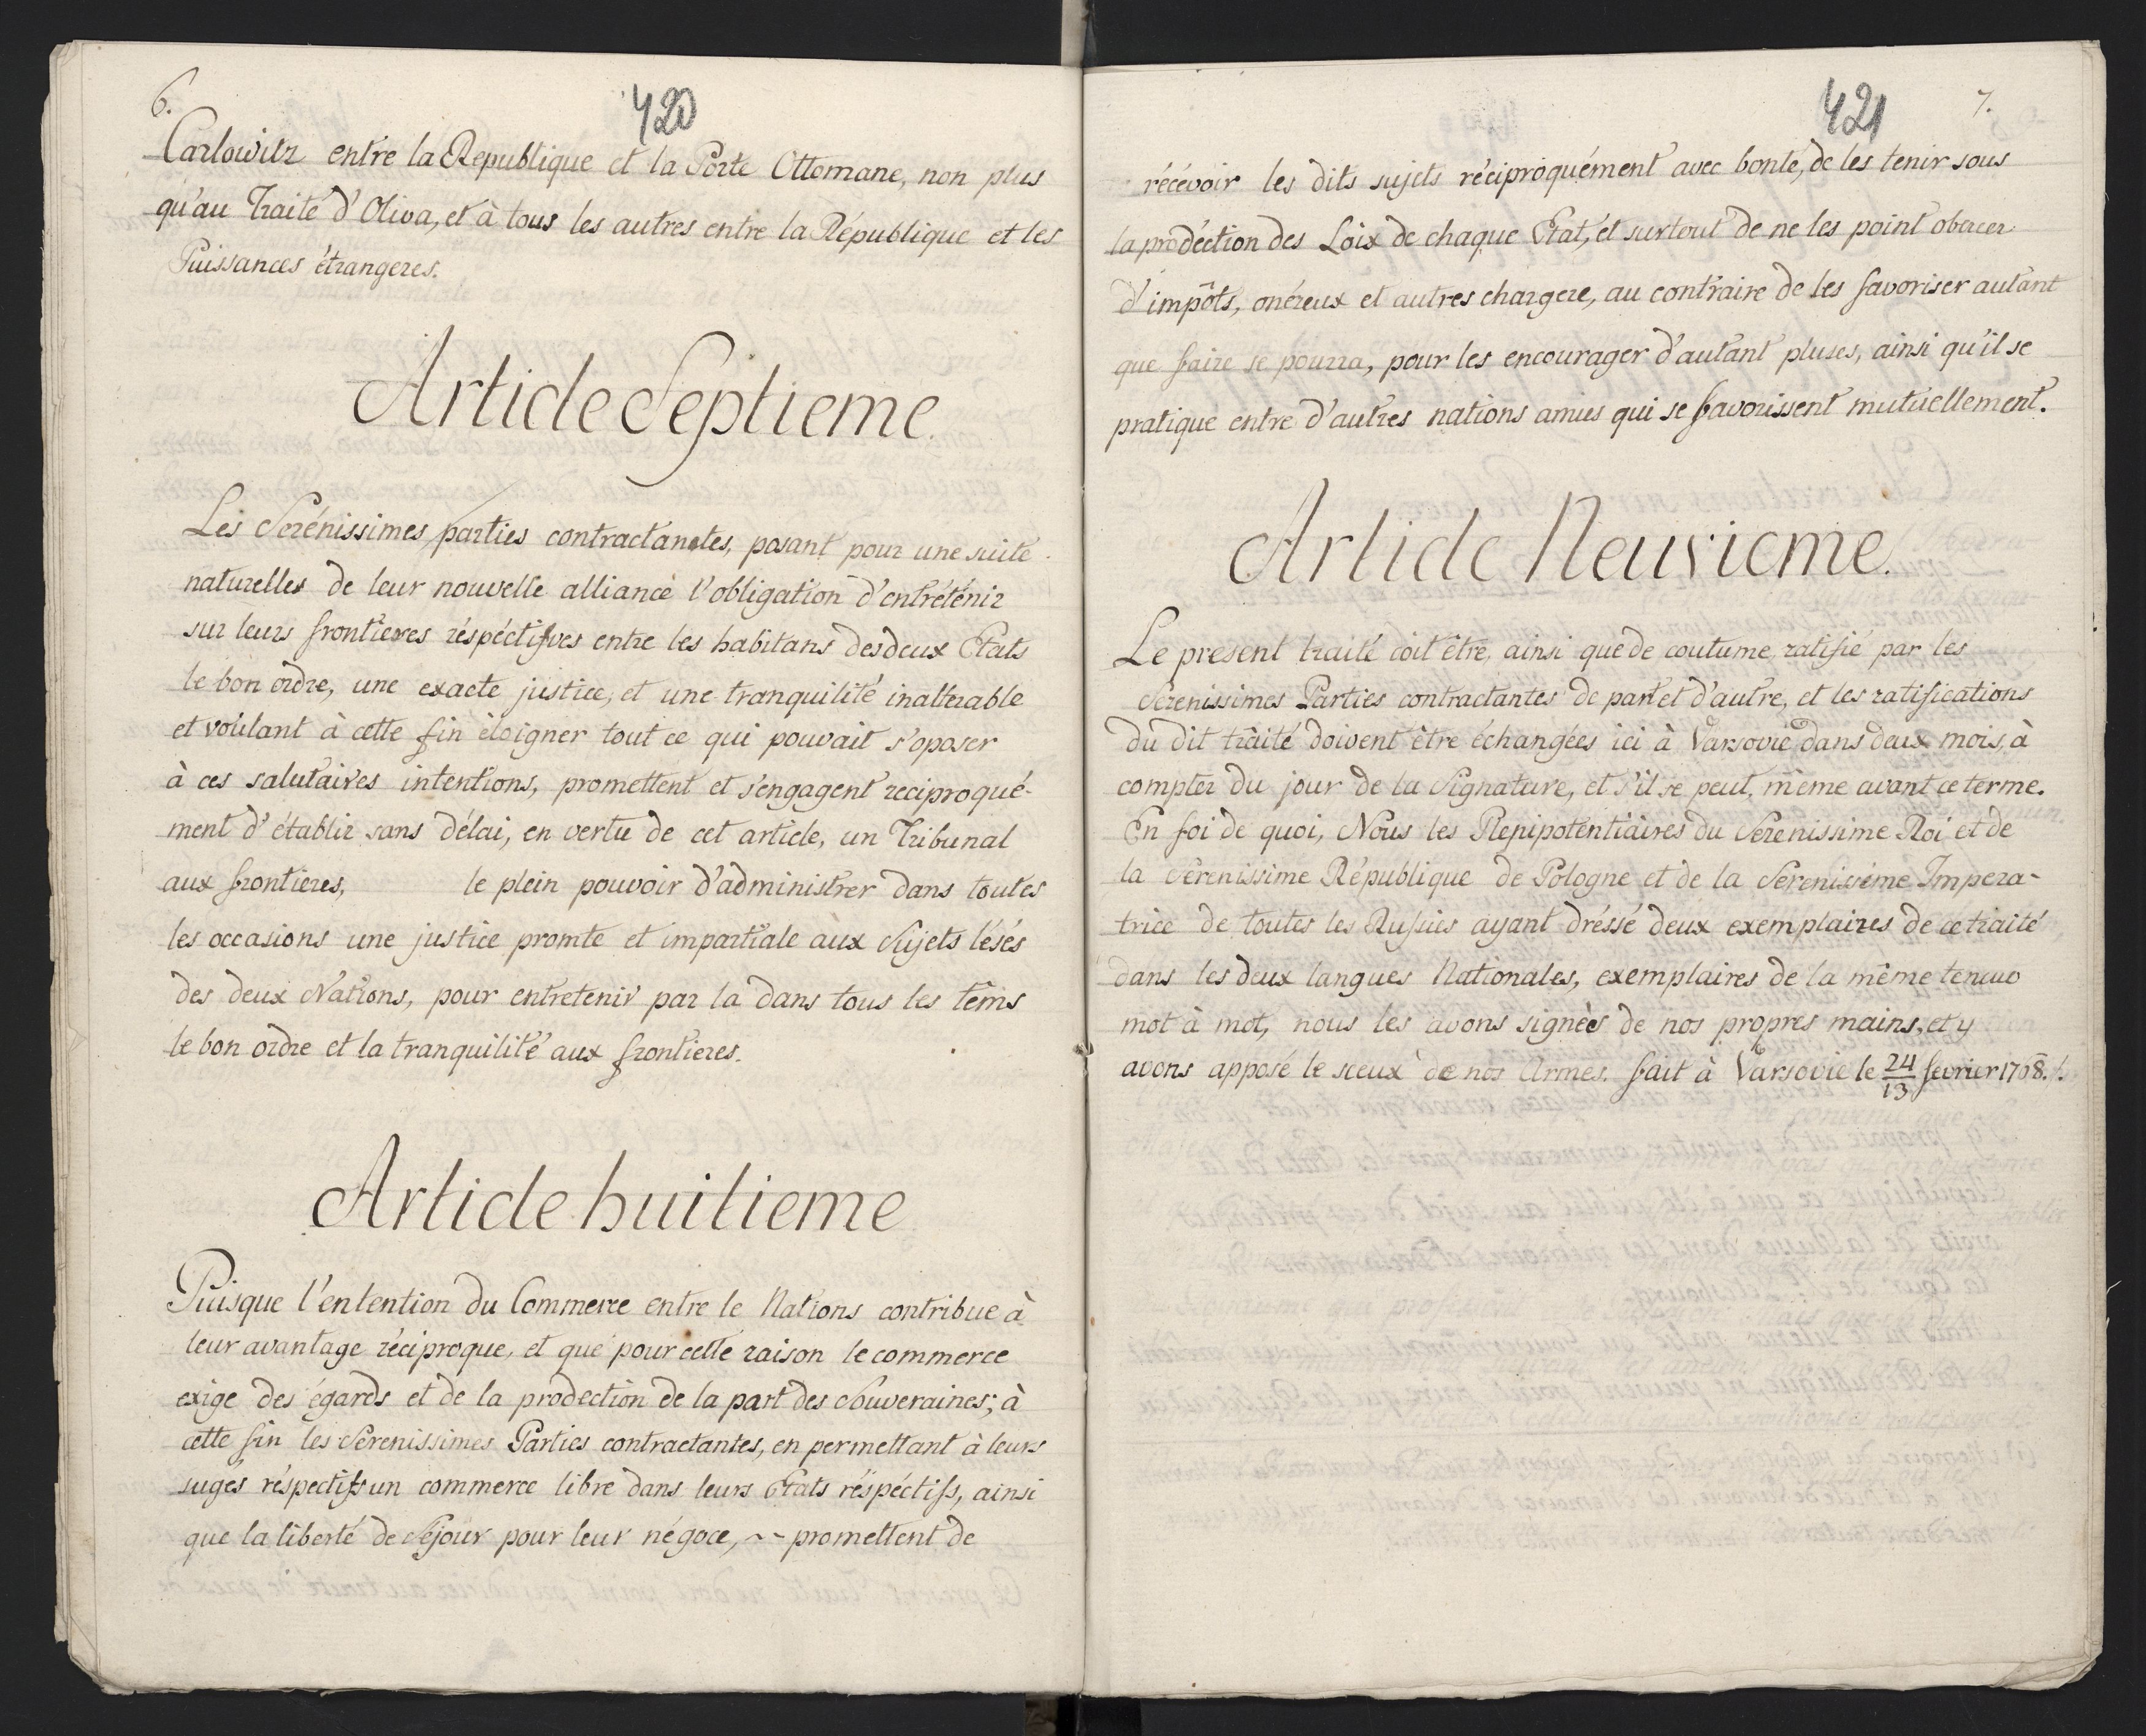 6.
420
Carlowitz entre la Republique et la Porte Ottomane, non plus
qu'au Traité d'Oliva, et à tous les autres entre la République et les
Puissances étrangeres.
Article Septieme.
Les Serénissimes parties contractantes, posant pour une suite
naturelles de leur nouvelle alliance l'obligation d'entréténir
sur leurs frontieres réspéctives entre les habitans des deux Etats
le bon ordre, une exacte justice, et une tranquilité inalterable
et voulant à cette fin éloigner tout ce qui pouvait s'oposer
à ces salutaires intentions, promettent et s'engagent reciproqué-
ment d'établir sans délai, en vertu de cet article, un Tribunal
aux frontieres, le plein pouvoir d'administrer dans toutes
les occasions une justice promte et impartiale aux Sujets lésés
des deux Nations, pour entretenir par la dans tous les têms
le bon ordre et la tranquilité aux frontieres.
Article huitieme
Puisque l'entention du Commerce entre le Nations contribue à
leur avantage réciproque, et que pour cette raison le commerce
exige des égards et de la prodection de la part des Souveraines; à
cette fin les Serenissimes Parties contractantes, en permettant à leurs
sugés réspectifs un commerce libre dans leurs Etats réspéctifs, ainsi
que la liberté de Séjour pour leur négoce, ~~ promettent de
421
7.
récévoir les dits sujets réciproquément avec bonté, de les tenir sous
la prodéction des Loix de chaque Etat, et surtout de ne les point oberer
d'impôts, onéreux et autres chargere, au contraire de les favoriser autant
que faire se pourra, pour les encourager d'autant pluses, ainsi qu'il se
pratique entre d'autres nations amies qui se favorissent mutuellement.
Article Neuvieme.
Le present traité doit être, ainsi que de coutume, ratifié par les
Serenissimes Parties contractantes de part et d'autre, et les ratifications
du dit traité doivent être échangées ici à Varsovie dans deux mois, à
compter du jour de la Signature, et s'il se peut, même avant ce terme.
En foi de quoi, Nous les Plenipotentiaires du Serenissime Roi et de
la Serenissime République de Pologne et de la Serenissime Impera-
trice de toutes les Russies ayant dréssé deux exemplaires de ce traité
dans les deux langues Nationales, exemplaires de la même teneur
mot à mot, nous les avons signées de nos propres mains, et y
avons apposé le sceux de nos Armes. fait à Varsovie le 24/13 fevrier 1768.